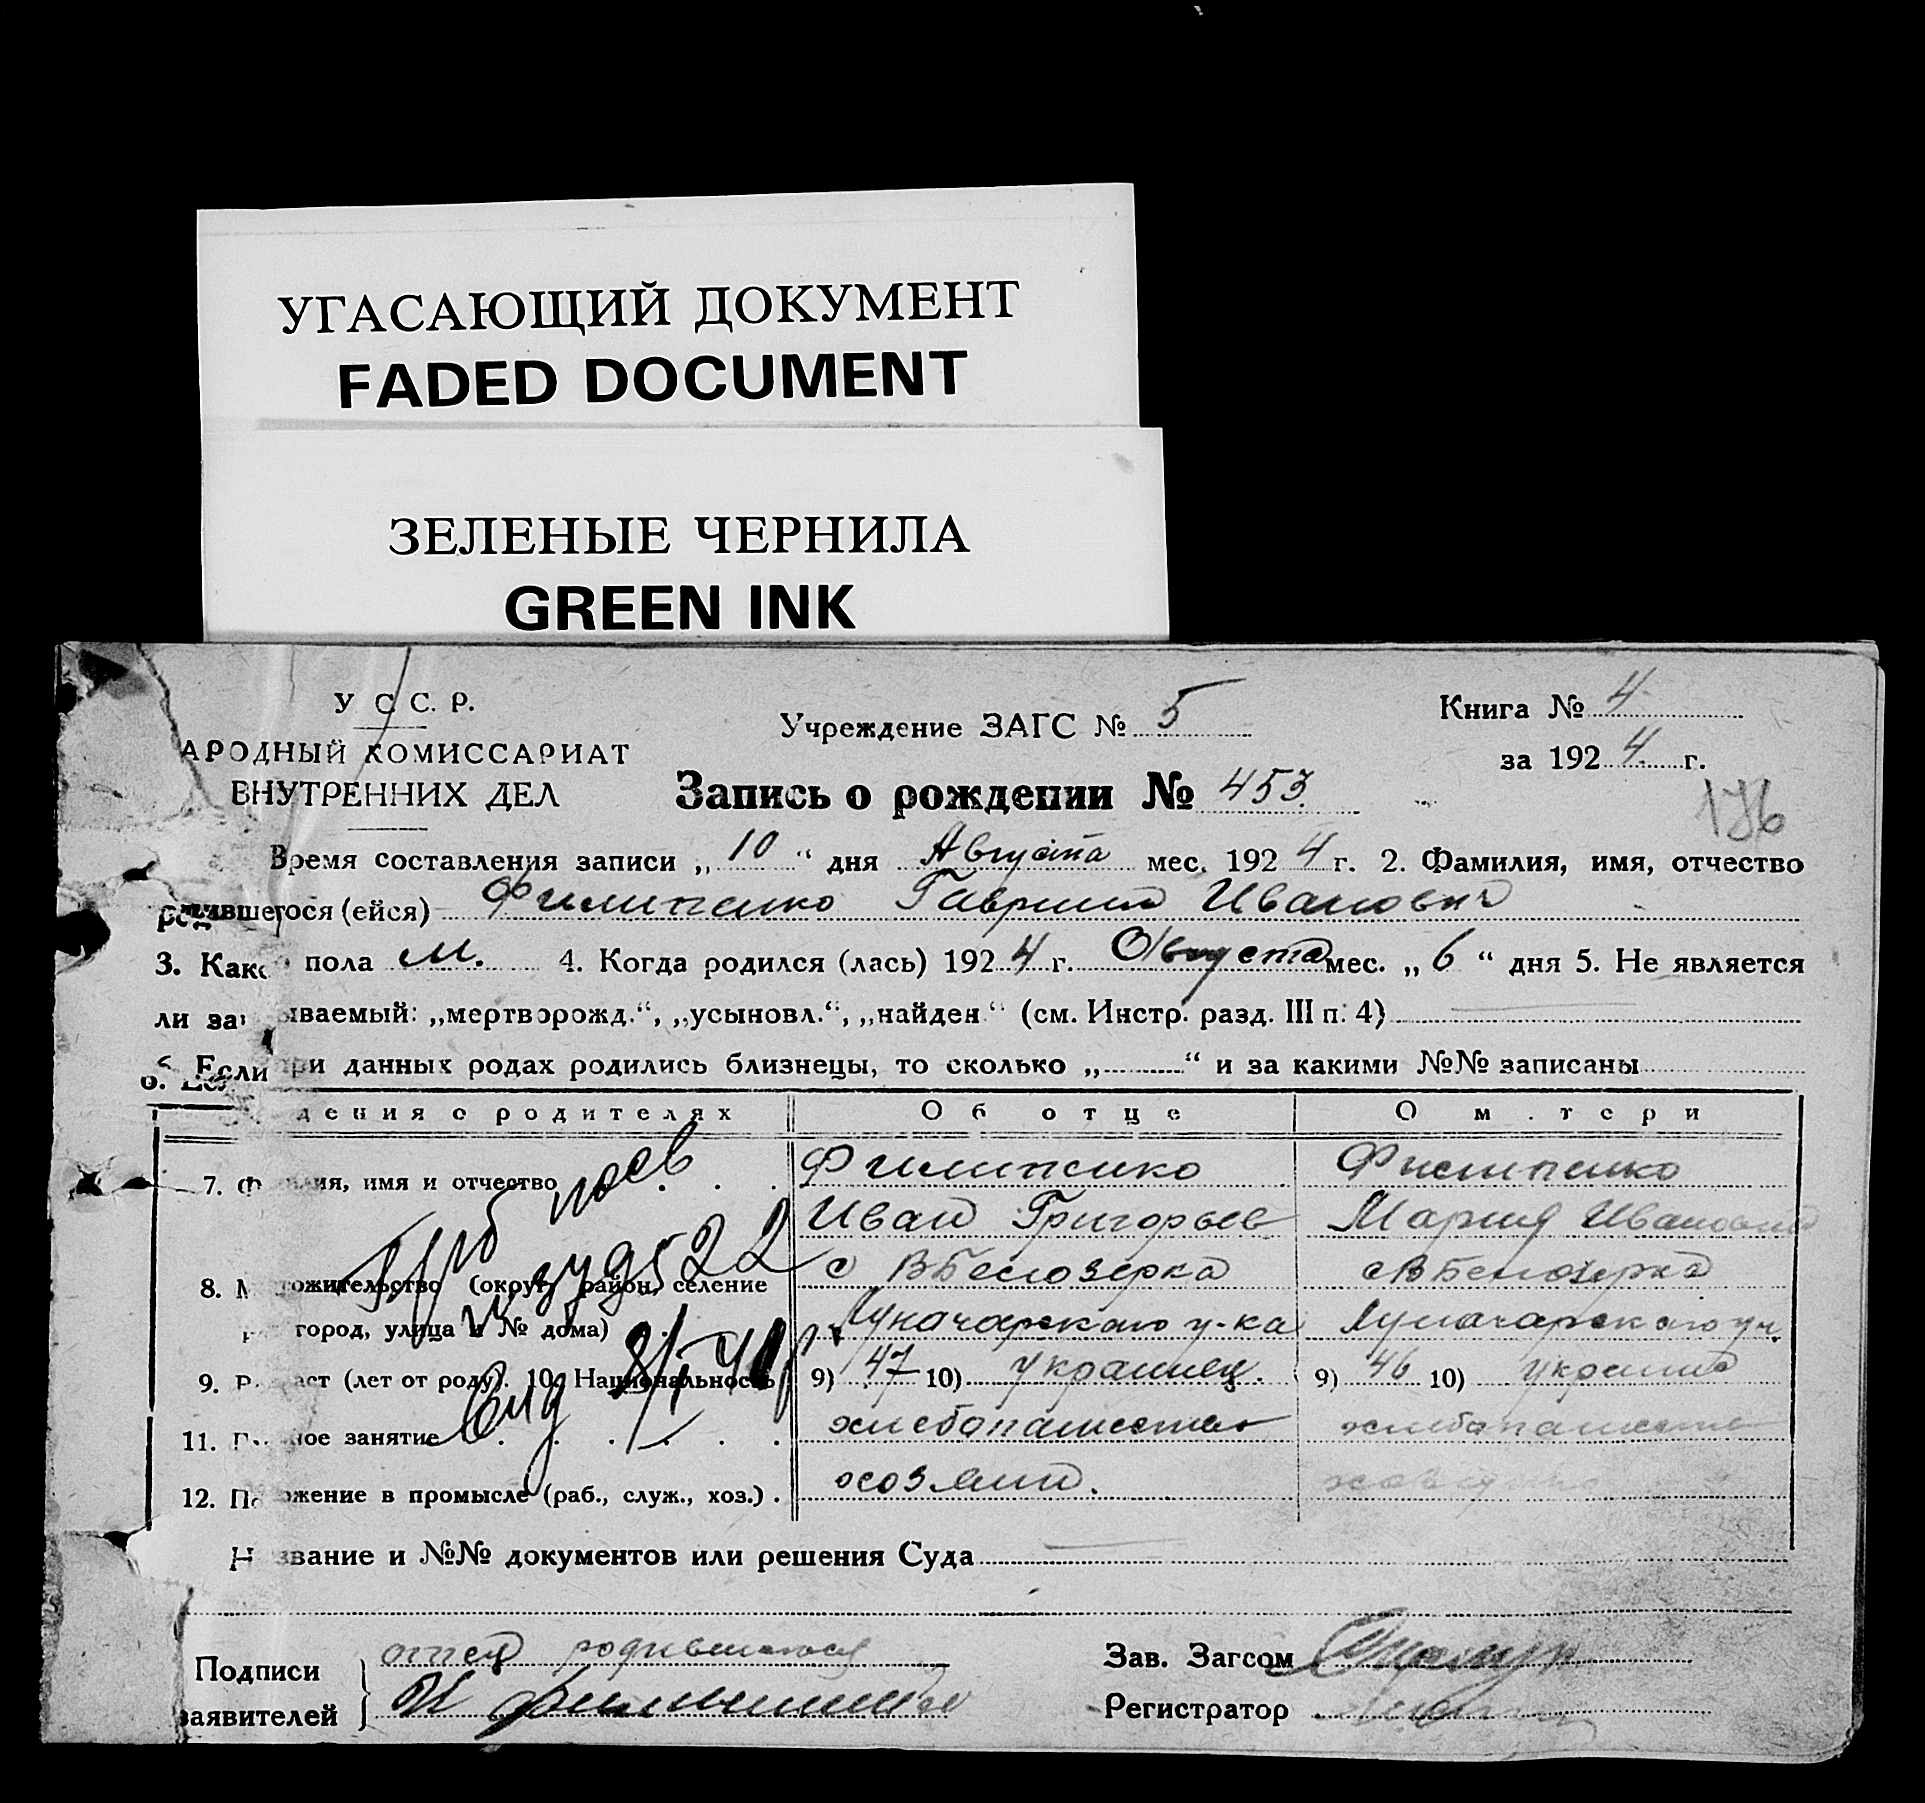 УГАСАЮЩИЙ ДОКУМЕНТ
FADED DOCUMENT
ЗЕЛЕНЫЕ ЧЕРНИЛА
GREEN INK
У С. С. Р.
АРОДНЫЙ КОМИССАРИАТ
ВНУТРЕННИХ ДЕЛ
Учреждение ЗАГС № 5
Книга № 4
за 1924 г.
Запись о рождении № 453
176
Время составления записи „10“ дня Августа мес. 1924 г. 2. Фамилия, имя, отчество
родившегося (ейся) Филипенко Гавриил Иванович
3. Како пола м. 4. Когда родился (лась) 1924 г. Августа мес. „6“ дня 5. Не является
ли за ываемый: „мертворожд.“, „усыновл.“, „найден.“ (см. Инстр. разд. III п. 4)
6. Если при данных родах родились близнецы, то сколько „ “ и за какими №№ записаны
дения о родителях Об отце О м тери
7. Ф ия, имя и отчество Филипенко Филипенко
Иван Григорьев Мария Ивановна
8. М ожительство (округ, район, селение с ВБелозерка с ВБелозерка
город, улица и № дома) Луначарского у-ка Луначарского уч.
9. В аст (лет от роду). 10. Национальность 9) 47 10) украинец. 9) 46 10) украинка
11. Г ное занятие хлебопашество хлебопашество
12. По ожение в промысле (раб., служ., хоз.) хозяин.
Н звание и №№ документов или решения Суда
Подписи заявителей
отец родившегося
И Филипенко
Зав. Загсом
Регистратор